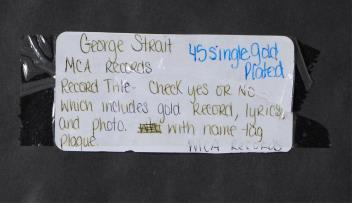 George Strait 45 single Gold
MCA Records Plated
Record Title- Check yes OR NO
which includes gold Record, lyrics,
and photo. with name-tag
plaque. MCA Records